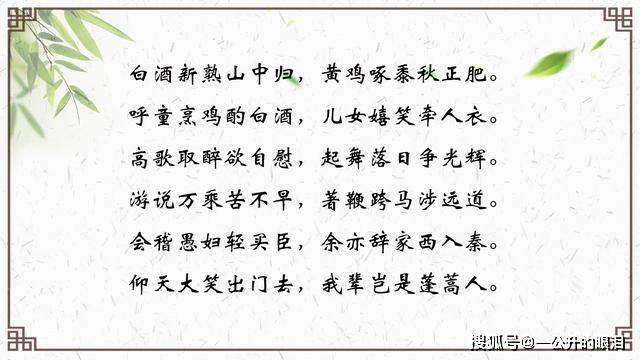 白酒新熟山中归，黄鸡啄黍秋正肥。
呼童烹鸡酌白酒，儿女嬉笑牵人衣。
高歌取醉欲自慰，起舞落日争光辉。
游说万乘苦不早，著鞭跨马涉远道。
会稽愚妇轻买臣，余亦辞家西入秦。
仰天大笑出门去，我辈岂是蓬蒿人。
搜狐号@一公升的眼泪